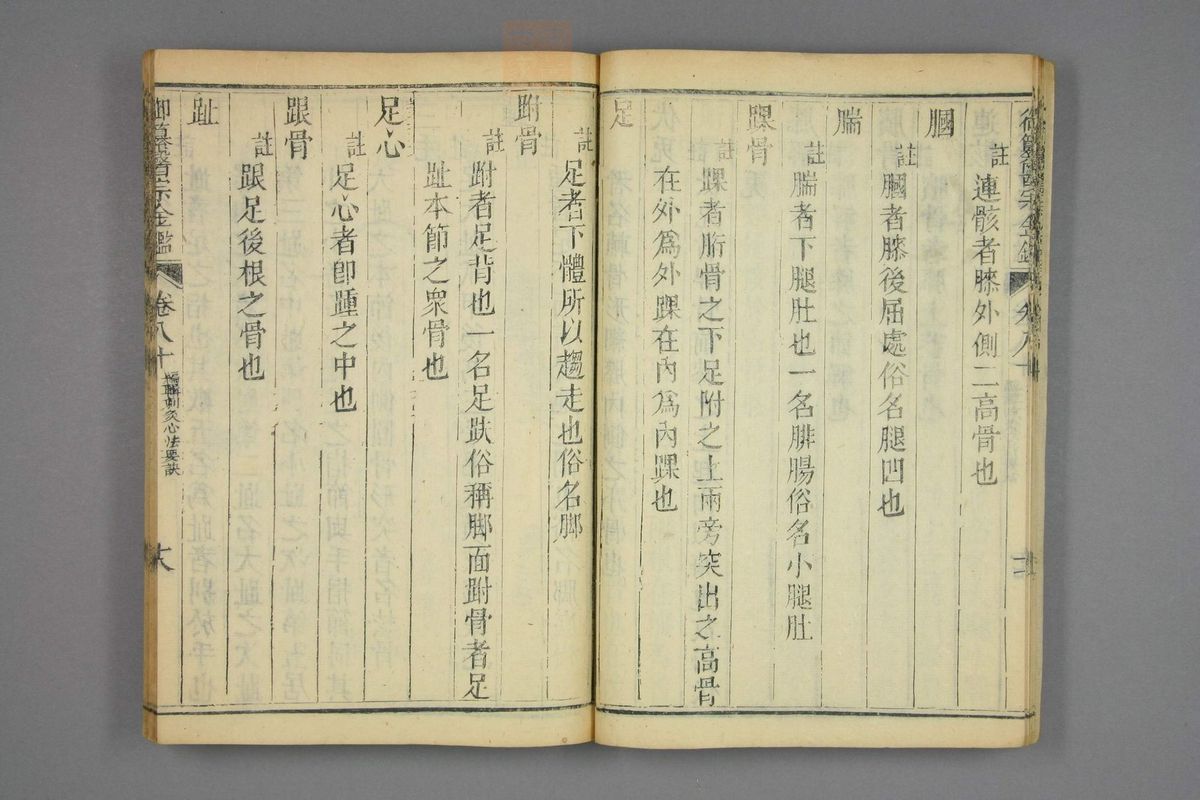 註連骸者膝外側二高骨也
膕
註膕者膝後屈處俗名腿凹也
腨
註腨者下腿肚也一名腓腸俗名小腿肚
踝骨
註踝者胻骨之下足跗之上兩旁突出之高骨
在外爲外踝在內爲內踝也
足
註足者下體所以趨走也俗名脚
跗骨
註跗者足背也一名足趺俗稱脚面跗骨者足
趾本節之衆骨也
足心
註足心者卽踵之中也
跟骨
註跟足後根之骨也
趾
御纂醫宗金鑑
卷八十
編輯刺灸心法要訣